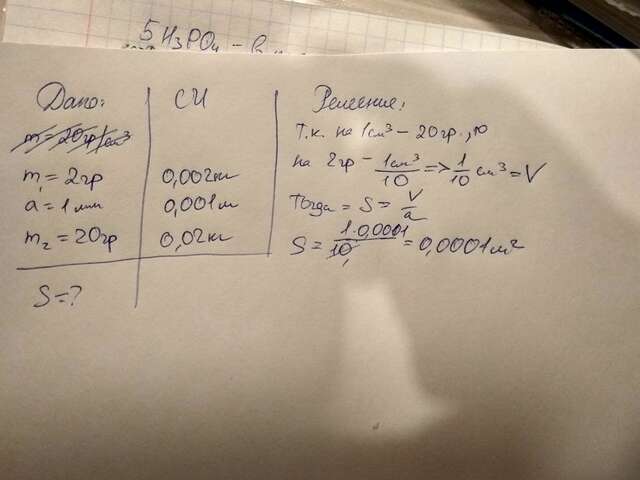 5H₃PO₄ - в
Дано:
m = 20гр/см³
m₁ = 2гр
a = 1мм
m₂ = 20гр
S = ?
СИ
0,002кг
0,001м
0,02кг
Решение:
Т.к. на 1см³ - 20гр., то
на 2гр - 1см³/10 => 1/10 см³ = V
Тогда = S = V/a
S = 1·0,0001/10 = 0,0001м²